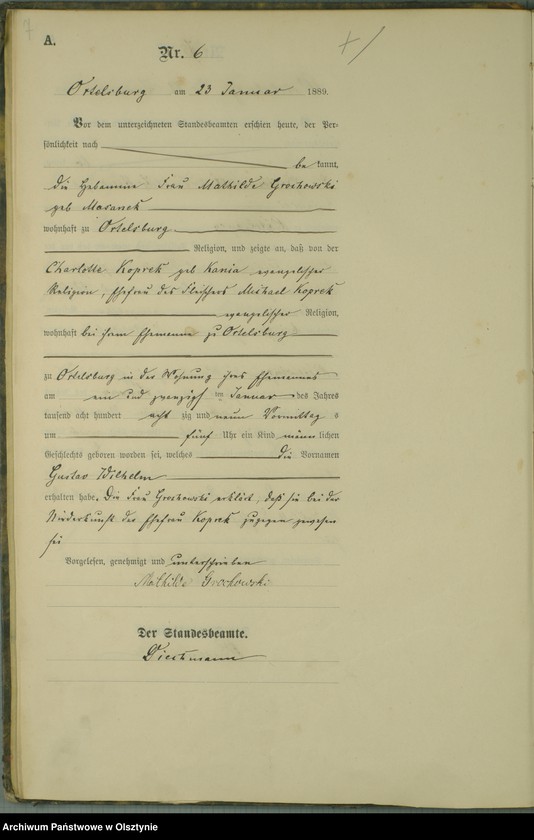 A.
Nr. 6
Ortelsburg am 23 Januar 1889.
Vor dem unterzeichneten Standesbeamten erschien heute, der Per-
sönlichkeit nach
be kannt,
die Hebamme Frau Mathilde Grochowski
geb Masanek
wohnhaft zu Ortelsburg
Religion, und zeigte an, daß von der
Charlotte Koprek geb Kania evangelischer
Religion, Ehefrau des Fleischers Michael Koprek
evangelischer Religion,
wohnhaft bei ihrem Ehemanne zu Ortelsburg
zu Ortelsburg in der Wohnung ihres Ehemannes
am ein und zwanzigst en Januar des Jahres
tausend acht hundert acht zig und neun Vormittag s
um fünf Uhr ein Kind männ lichen
Geschlechts geboren worden sei, welches die Vornamen
Gustav Wilhelm
erhalten habe. Die Frau Grochowski erklärt, daß sie bei der
Niederkunft der Ehefrau Koprek zugegen gewesen
sei
Vorgelesen, genehmigt und unterschrieben
Mathilde Grochowski
Der Standesbeamte.
Archiwum Państwowe w Olsztynie